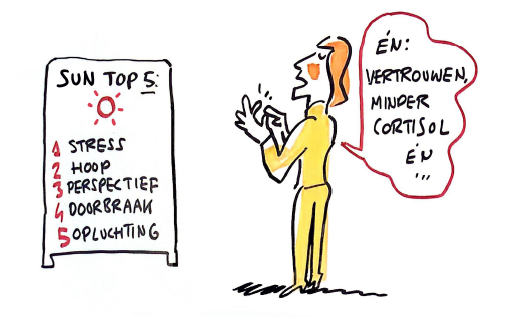 SUN TOP 5:
1 STRESS
2 HOOP
3 PERSPECTIEF
4 DOORBRAAK
5 OPLUCHTING
ÉN:
VERTROUWEN,
MINDER
CORTISOL
ÉN
...